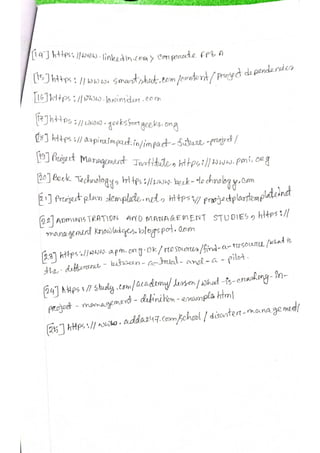 [14] https://www.linkedin.com> corporate FP&A
[15] https://www.smartsheet.com/content/project dependencies
[16] https://www.laximidur.com
[17] https://www.geeksforgeeks.org
[18] https://aspireimpact.in/impact-future-project/
[19] Project Management Institute, https://www.pmi.org
[20] Beck Technology, https://www.beck-technology.com
[21] Project plan template.net, https://projectplantemplate.net
[22] ADMINISTRATION AND MANAGEMENT STUDIES, https://
management knowledges.blogspot.com
[23] https://www.apm.org.uk/resources/find-a-resource/what is
the-difference-between-a-trial-and-a-pilot.
[24] https://study.com/academy/lesson/what-is-crashing-in-
project-management-definition-example.html
[25] https://www.adda247.com/school/disaster-management/